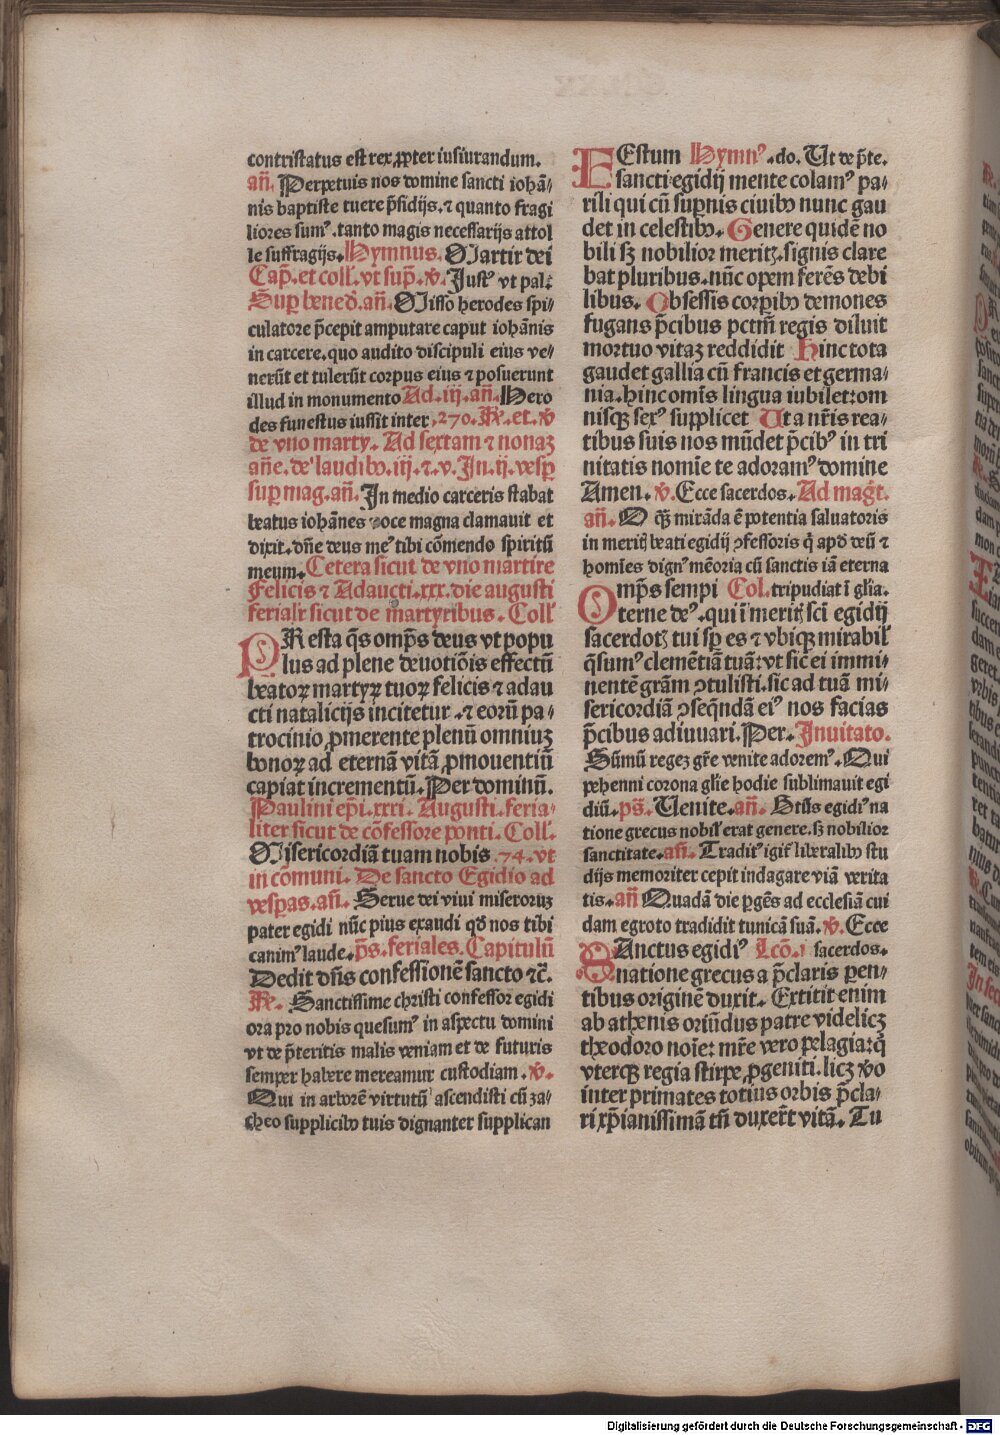 contristatus est rex ꝓpter iusiurandum.
añ. Perpetuis nos domine sancti iohã⸗
nis baptiste tuere p̃sidijs. ⁊ quanto fragi
liores sumꝰ. tanto magis necessarijs attol
le suffragijs. Hymnus. Martir dei
Cap̃. et coll̃. vt sup̃. v̄. Justꝰ vt pal.
Suꝑ bened̃. añ. Misso herodes spi⸗
culatore p̃cepit amputare caput iohãnis
in carcere. quo audito discipuli eius ve⸗
nerũt et tulerũt corpus eius ⁊ posuerunt
illud in monumento Ad. iij. añ. Hero
des funestus iussit inter .270. R̃. et. v̄
de vno marty. Ad sextam ⁊ nonaꝫ
añe. de laudibꝰ. iij. ⁊. v. Jn. ij. vesꝑ
suꝑ mag. añ. Jn medio carceris stabat
beatus iohãnes voce magna clamauit et
dixit. dñe deus meꝰ tibi cõmendo spiritũ
meum. Cetera sicut de vno martire
Felicis ⁊ Adaucti. xxx. die augusti
ferialr̃ sicut de martyribus. Coll̃
PResta q̃s omp̃s deus vt popu
lus ad plene deuotiõis effectũ
beatoꝝ martyꝝ tuoꝝ felicis ⁊ adau
cti natalicijs incitetur. ⁊ eorũ pa⸗
trocinio ꝓmerente plenũ omniuꝫ
bonoꝝ ad eternã vitã ꝓmouentiũ
capiat incrementũ. Per dominũ.
Paulini ep̃i. xxxi. Augusti. feria⸗
liter sicut de cõfessore ponti. Coll̃.
Misericordiã tuam nobis .74. vt
in cõmuni. De sancto Egidio ad
vesperas. añ. Serue dei viui miseroruꝫ
pater egidi nũc pius exaudi qđ nos tibi
canimꝰ laude. ps̃. feriales. Capitulũ
Dedit dñs confessionẽ sancto ⁊c̃.
R̃. Sanctissime christi confessor egidi
ora pro nobis quesumꝰ in aspectu domini
vt de p̃teritis malis veniam et de futuris
semper habere mereamur custodiam. v̄.
Qui in arborẽ virtutũ ascendisti cũ za⸗
cheo supplicibꝰ tuis dignanter supplican
FEstum Hymnꝰ. do. Ut de p̃te.
sancti egidij mente colamꝰ pa⸗
rili qui cũ suꝑnis ciuibꝰ nunc gau
det in celestibꝰ. Genere quidẽ no
bili sꝫ nobilior meritꝭ. signis clare
bat pluribus. nũc opem ferẽs debi
libus. Obsessis corꝑibꝰ demones
fugans p̃cibus pctm̃ regis diluit
mortuo vitaꝫ reddidit Hinc tota
gaudet gallia cũ francis et germa⸗
nia. hinc om̃is lingua iubilet: om
nisqꝫ sexꝰ supplicet Ut a nr̃is rea⸗
tibus suis nos mũdet p̃cibꝰ in tri
nitatis nomĩe te adoramꝰ domine
Amen. v̄. Ecce sacerdos. Ad mag̃t.
añ. O qꝫ mirãda ẽ potentia saluatoris
in meritꝭ beati egidij ↄfessoris q̃ apđ deũ ⁊
homĩes dignꝰ mẽoria cũ sanctis iã eterna
OMp̃s sempi Col. tripudiat ĩ gl̃ia.
terne deꝰ. qui ĩ meritꝭ sc̃i egidij
sacerdotꝭ tui sꝑ es ⁊ vbiqꝫ mirabil̃
q̃sumꝰ clemẽtiã tuã: vt sic̃ ei immi⸗
nentẽ gr̃am ↄtulisti. sic ad tuã mi⸗
sericordiã ↄseq̃ndã eiꝰ nos facias
p̃cibus adiuuari. Per. Jnuitato.
Sũmũ regeꝫ gl̃ie venite adoremꝰ. Qui
pehenni corona gl̃ie hodie sublimauit egi
diũ. ps̃. Uenite. añ. Sctũs egidiꝰ na
tione grecus nobil̃ erat genere. sꝫ nobilior
sanctitate. añ. Traditꝰ igit̃ liberalibꝰ stu
dijs memoriter cepit indagare viã verita
tis. añ Quadã die ꝑgẽs ad ecclesiã cui
dam egroto tradidit tunicã suã. v̄. Ecce
SAnctus egidiꝰ Lcõ. i sacerdos.
natione grecus a p̃claris ꝑen⸗
tibus originẽ duxit. Extitit enim
ab athenis oriũdus patre videlicꝫ
theodoro noĩe: mr̃e vero pelagia: q̃
vterqꝫ regia stirpe ꝓgeniti. licꝫ v̾o
inter primates totius orbis p̃cla⸗
ri xp̃ianissimã tñ duxer̃t vitã. Tu
Digitalisierung gefördert durch die Deutsche Forschungsgemeinschaft - DFG